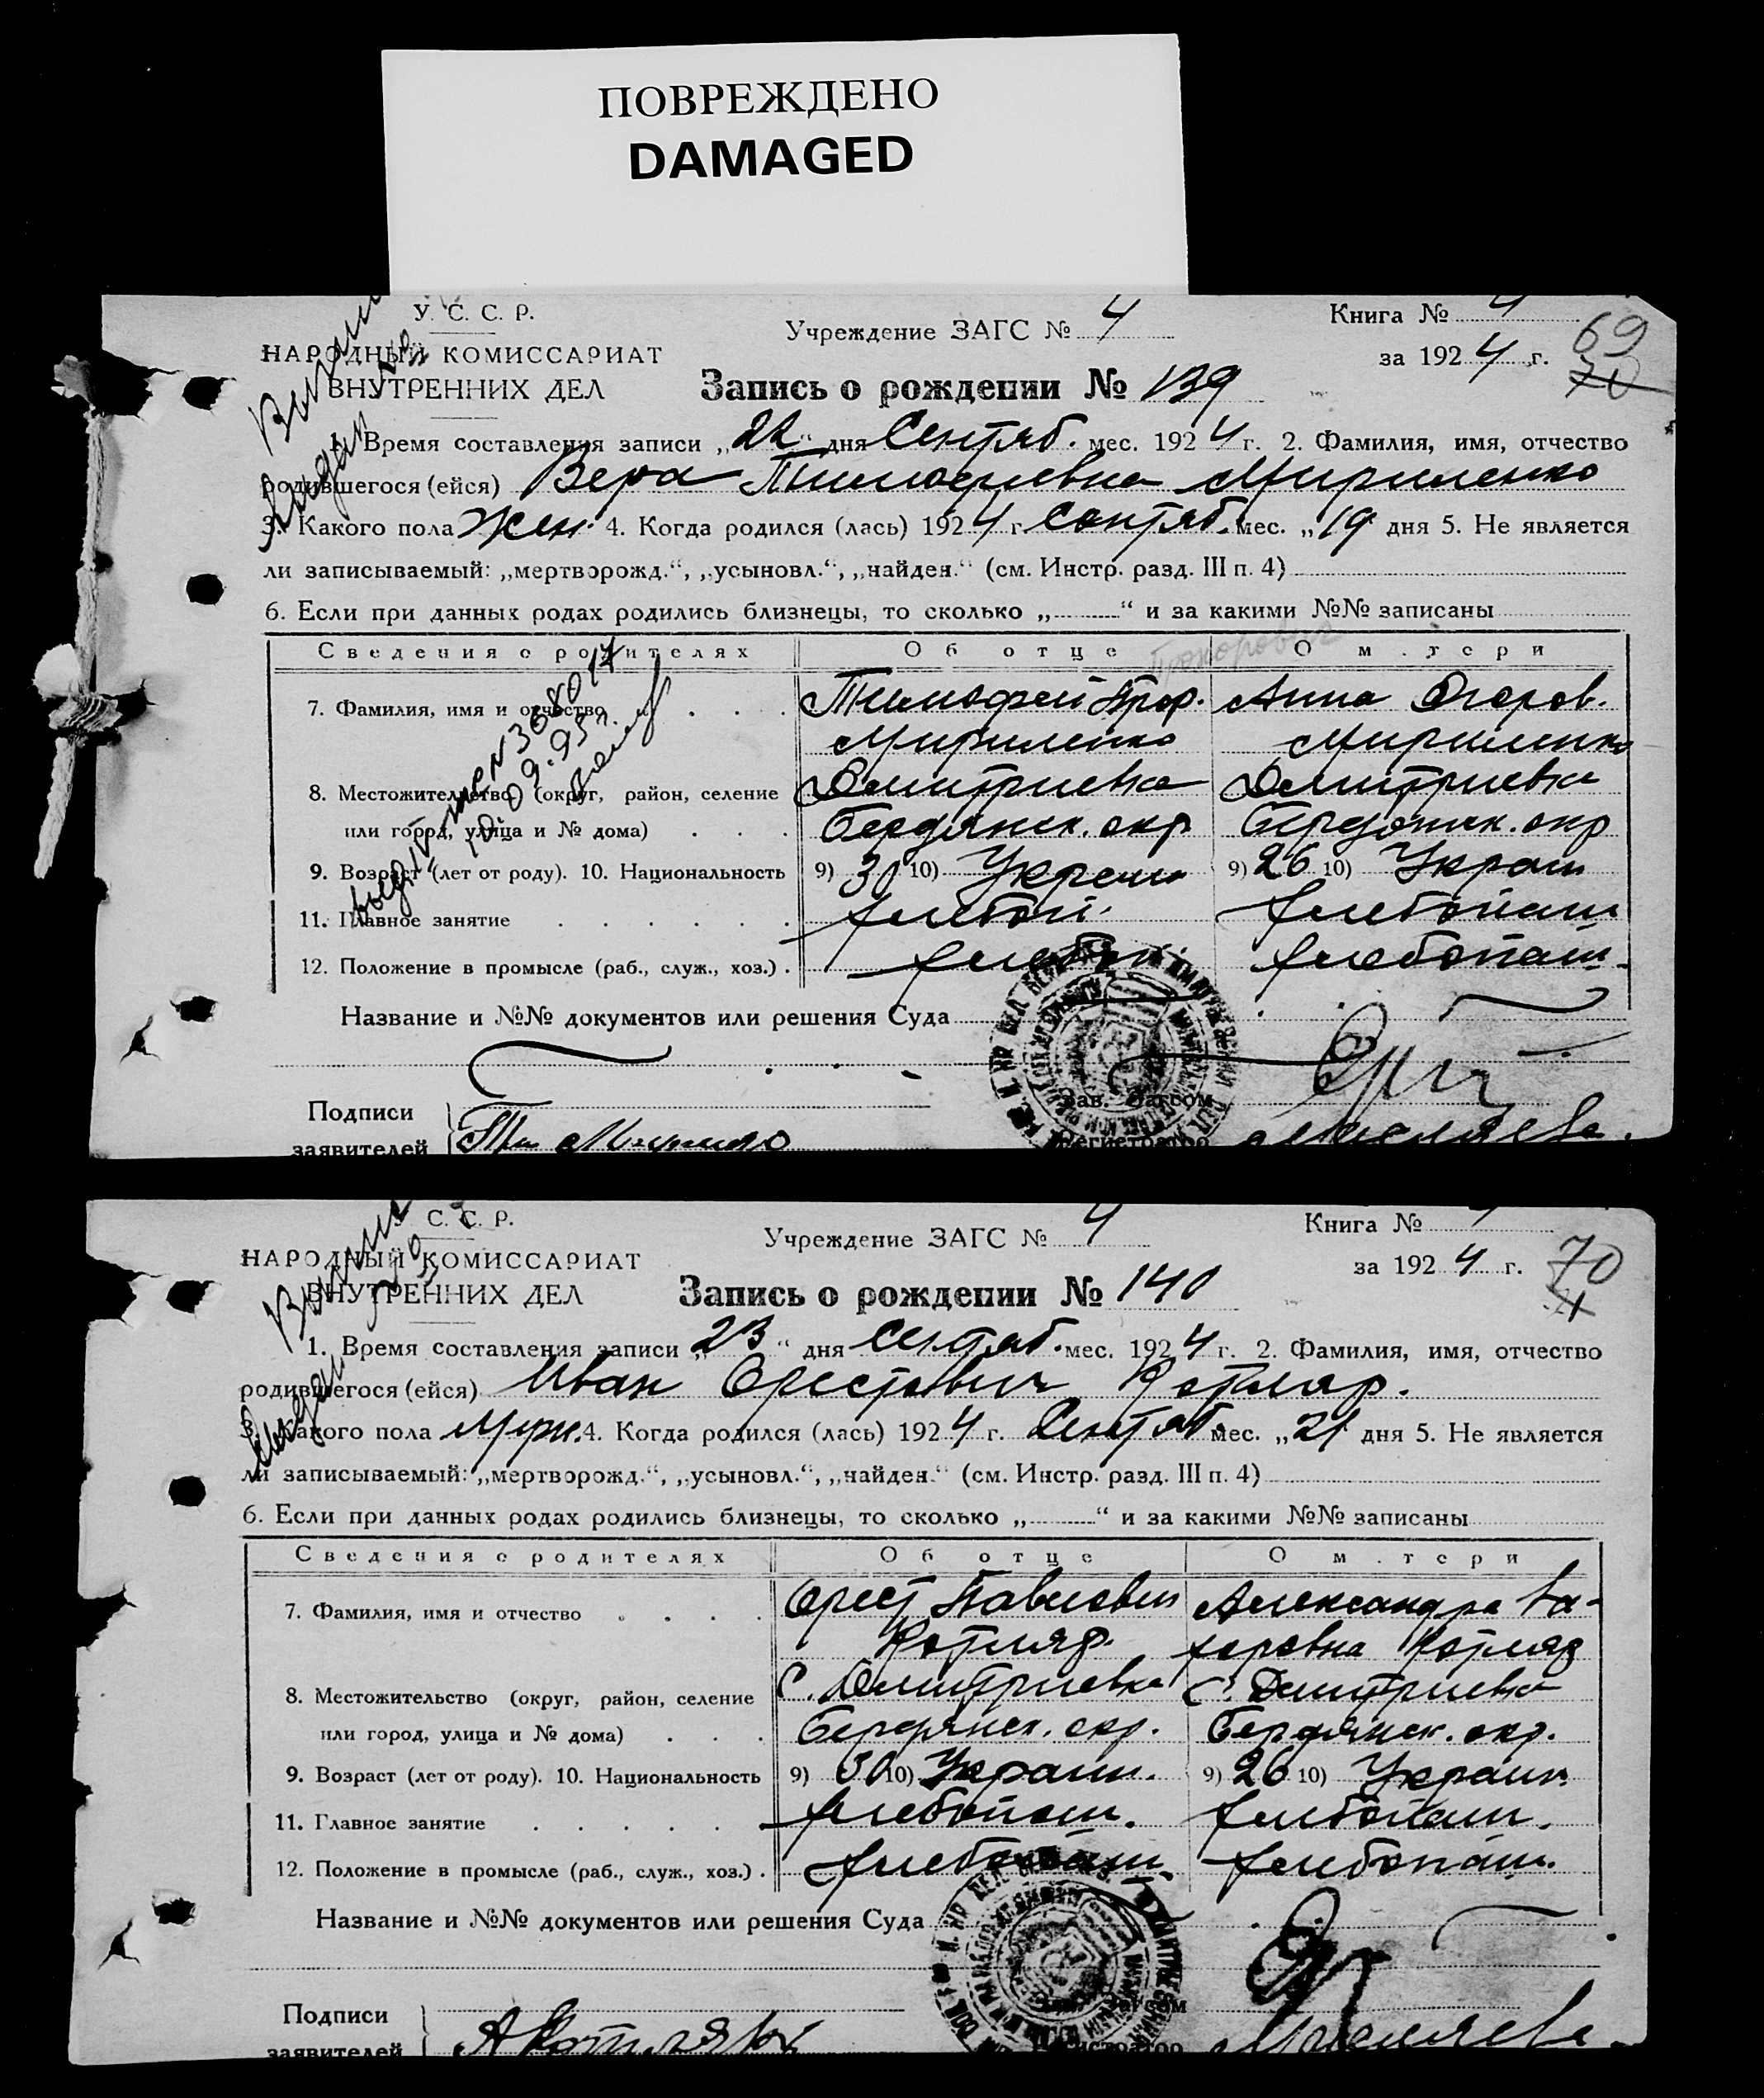 ПОВРЕЖДЕНО
DAMAGED
У. С. С. Р.
НАРОДНЫЙ КОМИССАРИАТ
ВНУТРЕННИХ ДЕЛ
Учреждение ЗАГС № 4
Книга № 4
за 1924 г.
69
70
Запись о рождении № 139
Время составления записи „22“ дня Сентяб. мес. 1924 г. 2. Фамилия, имя, отчество
родившегося (ейся) Вера Тимофеевна Мириленко
3. Какого пола Жен. 4. Когда родился (лась) 1924 г. Сентяб. мес. „19 дня 5. Не является
ли записываемый: „мертворожд.“, „усыновл.“, „найден.“ (см. Инстр. разд. III п. 4)
6. Если при данных родах родились близнецы, то сколько „ “ и за какими №№ записаны
Сведения о родителях Об отце О м.тери
Прохорович
7. Фамилия, имя и отчество Тимофей Прох. Анна Егоров.
Мириленко Мириленко
8. Местожительство (округ, район, селение Дмитриевка Дмитриевка
или город, улица и № дома) Бердянск. окр. Бердянск. окр
9. Возраст (лет от роду). 10. Национальность 9) 30 10) Украин 9) 26 10) Украин
11. Главное занятие хлебоп. хлебопаш
12. Положение в промысле (раб., служ., хоз.) хлебоп хлебопаш.
Название и №№ документов или решения Суда
Зав. Загсом
Подписи
заявителей
Регистратор
С. С. Р.
НАРОДНЫЙ КОМИССАРИАТ
ВНУТРЕННИХ ДЕЛ
Учреждение ЗАГС № 4
Книга №
за 1924 г.
70
Запись о рождении № 140
1. Время составления записи „23“ дня Сентяб. мес. 1924 г. 2. Фамилия, имя, отчество
родившегося (ейся) Иван Орестович Котляр.
3. Какого пола Муж. 4. Когда родился (лась) 1924 г. Сентяб. мес. „21 дня 5. Не является
ли записываемый: „мертворожд.“, „усыновл.“, „найден.“ (см. Инстр. разд. III п. 4)
6. Если при данных родах родились близнецы, то сколько „ “ и за какими №№ записаны
Сведения о родителях Об отце О м.тери
7. Фамилия, имя и отчество Орест Павлович Александра За-
Котляр. харовна Котляр
8. Местожительство (округ, район, селение С. Дмитриевка С. Дмитриевка
или город, улица и № дома) Бердянск. окр. Бердянск. окр.
9. Возраст (лет от роду). 10. Национальность 9) 30 10) Украин. 9) 26 10) Украин
11. Главное занятие хлебопаш. хлебопаш.
12. Положение в промысле (раб., служ., хоз.) хлебопаш. хлебопаш.
Название и №№ документов или решения Суда
Загсом
Подписи
заявителей
Регистратор